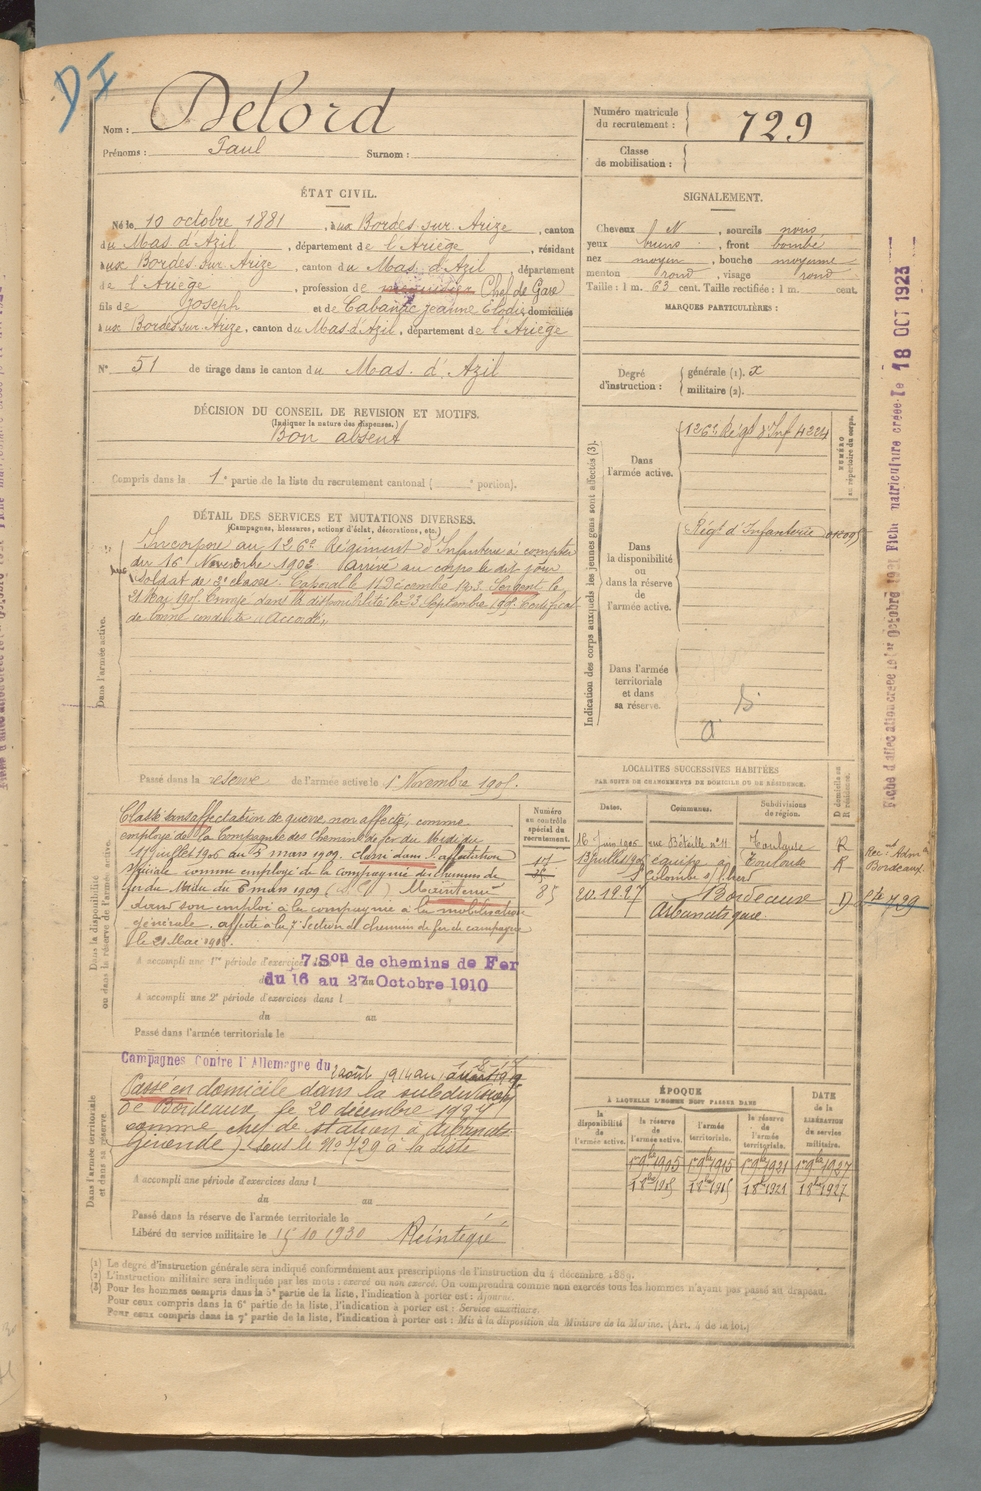 DI
Nom : Delord
Prénoms : Paul Surnom :
Numéro matricule du recrutement : 729
Classe de mobilisation :
ÉTAT CIVIL.
Né le 10 octobre 1881, à ux Bordes sur Arize, canton
du Mas d'Azil, département de l'Ariège, résidant
à ux Bordes sur Arize, canton du Mas d'Azil, département
de l'Ariège, profession de Chef de Gare
fils de Joseph et de Cabanié Jeanne Élodie, domiciliés
à ux Bordes sur Arize, canton du Mas d'Azil, département de l'Ariège
N° 51 de tirage dans le canton du Mas d'Azil
SIGNALEMENT.
Cheveux N, sourcils noirs,
yeux bruns, front bombé
nez moyen, bouche moyenne
menton rond, visage rond
Taille : 1 m. 63 cent. Taille rectifiée : 1 m. cent.
MARQUES PARTICULIÈRES :
Degré d'instruction : générale (1). x
militaire (2).
DÉCISION DU CONSEIL DE REVISION ET MOTIFS.
(Indiquer la nature des dispenses.)
Bon absent
Compris dans la 1e partie de la liste du recrutement cantonal ( e portion).
DÉTAIL DES SERVICES ET MUTATIONS DIVERSES.
(Campagnes, blessures, actions d'éclat, décorations, etc.)
Dans l'armée active.
Incorporé au 126e Régiment d'Infanterie à compter
du 16 Novembre 1902 arrivé au corps le dit jour
Soldat de 2e classe. Caporal le 11 Décembre 1903. Sergent le
21 Mai 1905. Envoyé dans la disponibilité le 23 Septembre 1905. Certificat
de bonne conduite "Accordé"
Passé dans la réserve de l'armée active le 1er Novembre 1905.
Indication des corps auxquels les jeunes gens sont affectés (3).
NUMÉRO au répertoire du corps.
Dans l'armée active.
126e Régt d'Inf 4224
Dans la disponibilité ou dans la réserve de l'armée active.
Régt d'Infanterie
Dans l'armée territoriale et dans sa réserve.
LOCALITÉS SUCCESSIVES HABITÉES
PAR SUITE DE CHANGEMENTS DE DOMICILE OU DE RÉSIDENCE.
Dates. Communes. Subdivisions de région. D domicile ou R résidence.
16 Juin 1906 rue Bétaille n° 11 Toulouse R
13 Juillet 1909 Toulouse R
20.12.27 Bordeaux D
Dans la disponibilité ou dans la réserve de l'armée active.
Numéro au contrôle spécial du recrutement.
17
85
Classé sans affectation de guerre, non affecté, comme
employé de la Compagnie des Chemins de fer du Midi du
11 juillet 1906 au 5 mars 1909. Classé dans l'affectation
spéciale comme employé de la Compagnie des chemins de
fer du Midi du 5 mars 1909 Maintenu
dans son emploi à la compagnie à la mobilisation
générale. affecté à la 7e Section de chemins de fer de campagne
A accompli une 1re période d'exercices dans l 7e Son de chemins de Fer
du 16 au 27 Octobre 1910
A accompli une 2e période d'exercices dans l
du au
Passé dans l'armée territoriale le
Dans l'armée territoriale et dans sa réserve.
Campagnes Contre l'Allemagne du août 1914 au
Passé en domicile dans la subdivision
de Bordeaux, le 20 décembre 1927
comme chef de station à Arbanats
Gironde) sous le N° 729 à la liste
A accompli une période d'exercices dans l
du au
Passé dans la réserve de l'armée territoriale le
Libéré du service militaire le 15 10 1930 Réintégré
ÉPOQUE
À LAQUELLE L'HOMME DOIT PASSER DANS
la disponibilité de l'armée active. la réserve de l'armée active. l'armée territoriale. la réserve de l'armée territoriale. DATE de la LIBÉRATION DU SERVICE militaire.
1er 9bre 1905 1er 9bre 1915 1er 9bre 1921 1er 9bre 1927
Fiche matriculaire créée le 18 OCT 1923
(1) Le degré d'instruction générale sera indiqué conformément aux prescriptions de l'instruction du 4 décembre 1889.
(2) L'instruction militaire sera indiquée par les mots : exercé ou non exercé. On comprendra comme non exercés tous les hommes n'ayant pas passé au drapeau.
(3) Pour les hommes compris dans la 5e partie de la liste, l'indication à porter est : Ajourné.
Pour ceux compris dans la 6e partie de la liste, l'indication à porter est : Service auxiliaire.
Pour ceux compris dans la 7e partie de la liste, l'indication à porter est : Mis à la disposition du Ministre de la Marine. (Art. 4 de la loi.)